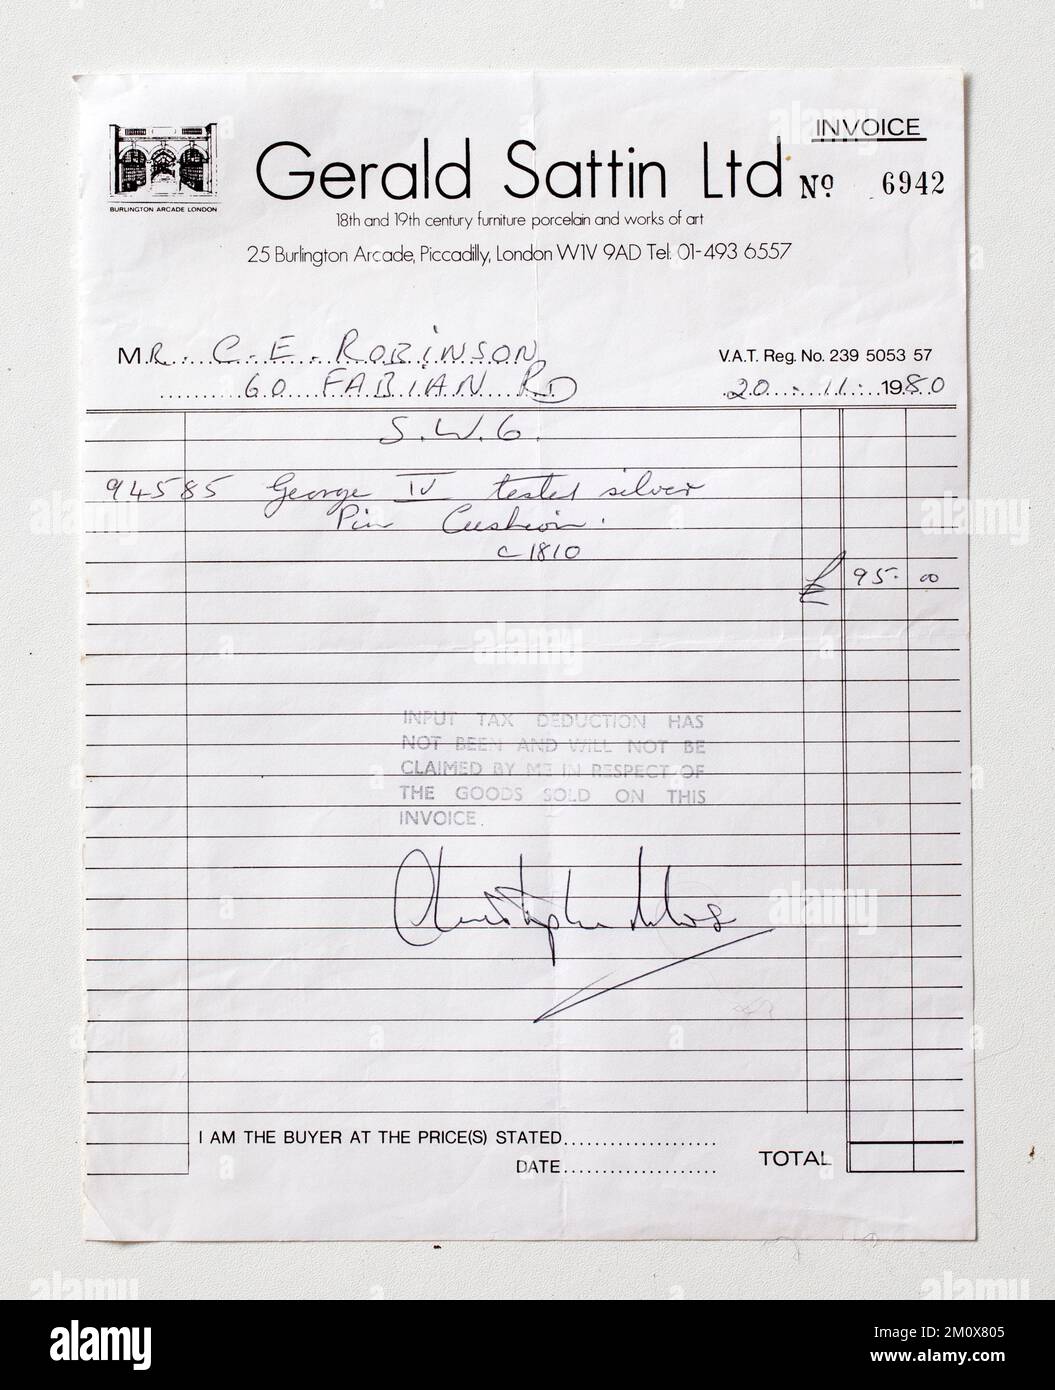 INVOICE
Gerald Sattin Ltd
Nº 6942
BURLINGTON ARCADE LONDON
18th and 19th century furniture porcelain and works of art
25 Burlington Arcade, Piccadilly, London W1V 9AD Tel: 01-493 6557
MR. C. E. ROBINSON
V.A.T. Reg. No. 239 5053 57
60 FABIAN RD
20 . 11 . 1980
S.W.6.
94585 George IV tested silver
Pin Cushion.
c 1810
£ 95. 00
INPUT TAX DEDUCTION HAS
NOT BEEN AND WILL NOT BE
CLAIMED BY ME IN RESPECT OF
THE GOODS SOLD ON THIS
INVOICE.
Christopher
I AM THE BUYER AT THE PRICE(S) STATED....................
DATE....................
TOTAL
alamy
Image ID: 2M0X805
www.alamy.com